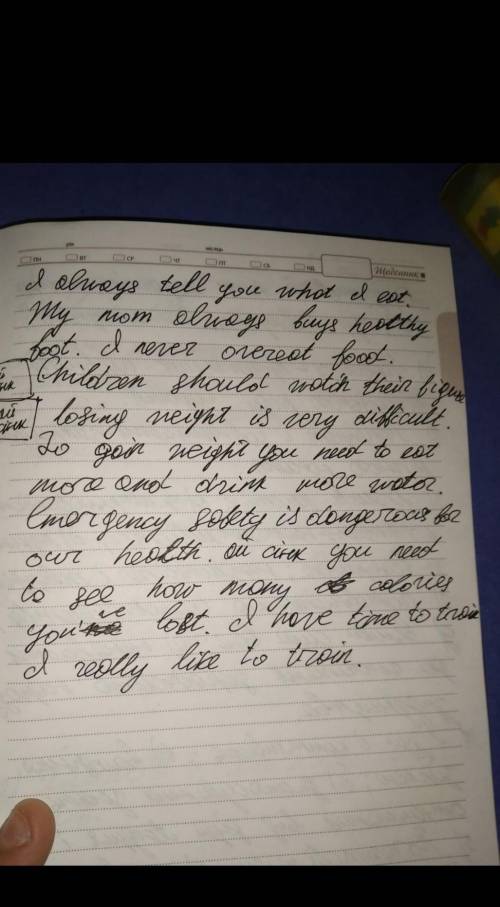 рік місяць
ПН ВТ СР ЧТ ПТ СБ НД Щоденник
I always tell you what I eat.
My mom always buys healthy
foot. I never overeat food.
Children should watch their figure
losing weight is very difficult.
To gain weight you need to eat
more and drink more water.
Emergency safety is dangerous for
our health. you need
to see how many calories
you've lost. I have time to train
I really like to train.